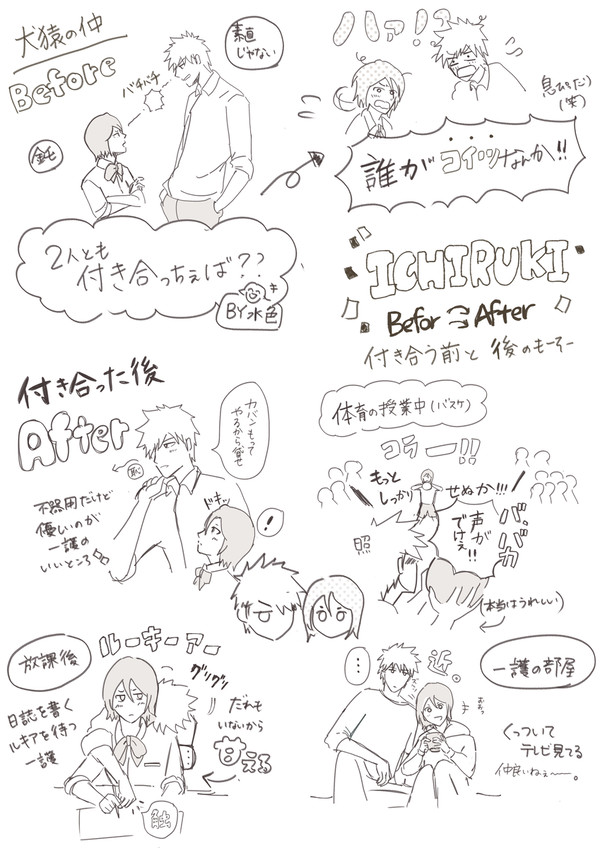 犬猿の仲
Before
素直
じゃない
バチバチ
鈍
2人とも
付き合っちぇば??
BY水色
ハァ!?
息ぴったり
(笑)
誰がコイツなんか!!
ICHIRUKI
Befor
After
付き合う前と後のもーそー
付き合った後
After
カバンもって
やるから貸せ
恥
不器用だけど
優しいのが
一護の
いいところ
ドキッ
!
体育の授業中(バスケ)
コラー!!
もっと
しっかり
せぬか!!!
バ・バカ
声が
でけぇ!!
照
(本当はうれしい)
放課後
ルーキーアー
グリグリ
日誌を書く
ルキアを待つ
一護
だれも
いないから
甘える
触
…
近。
一護の部屋
くっついて
テレビ見てる
仲良いねぇ〜。